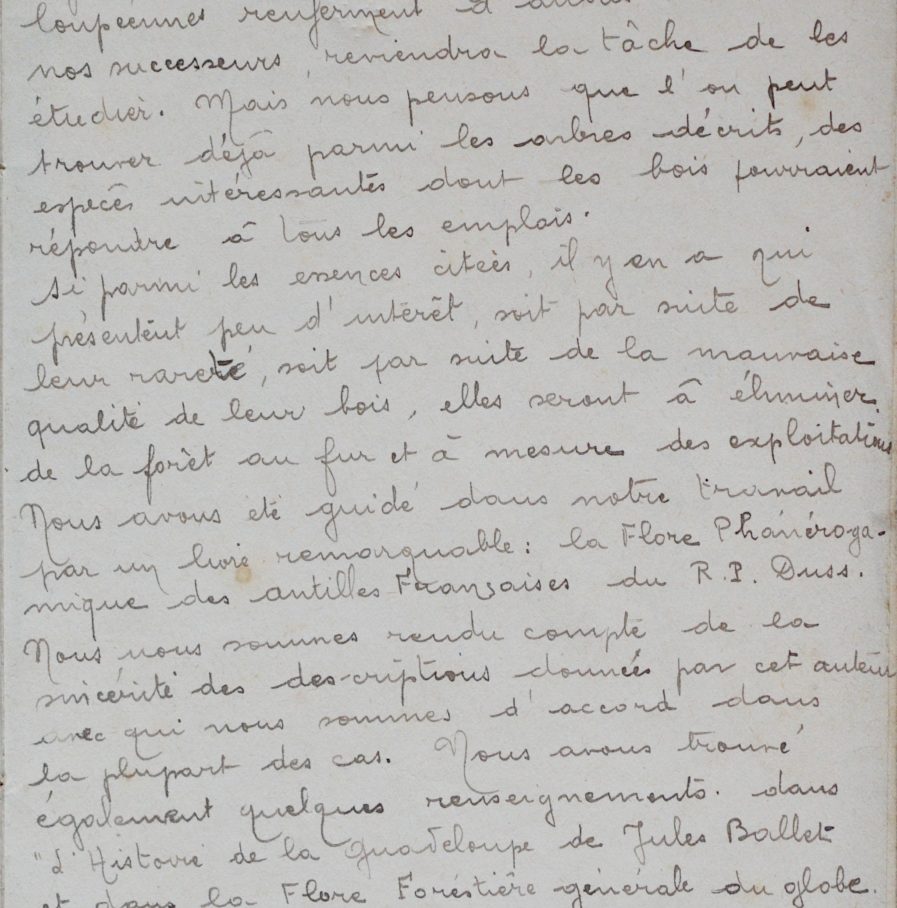 loupéennes renferment d'autres
nos successeurs, reviendra la tâche de les
étudier. Mais nous pensons que l'on peut
trouver déjà parmi les arbres décrits, des
espècés intéressantes dont les bois pourraient
répondre à tous les emplois.
Si parmi les essences citées, il y en a qui
présentent peu d'intérêt, soit par suite de
leur rareté, soit par suite de la mauvaise
qualité de leur bois, elles seront à éliminer
de la forêt au fur et à mesure des exploitations
Nous avons été guidé dans notre travail
par un livre remarquable : la Flore Phanéroga-
mique des antilles Françaises du R.P. Duss.
Nous nous sommes rendu compte de la
sincérité des descriptions données par cet auteur
avec qui nous sommes d'accord dans
la plupart des cas. Nous avons trouvé
également quelques renseignements. dans
"L'Histoire de la Guadeloupe de Jules Ballet
et dans la Flore Foréstière générale du globe.